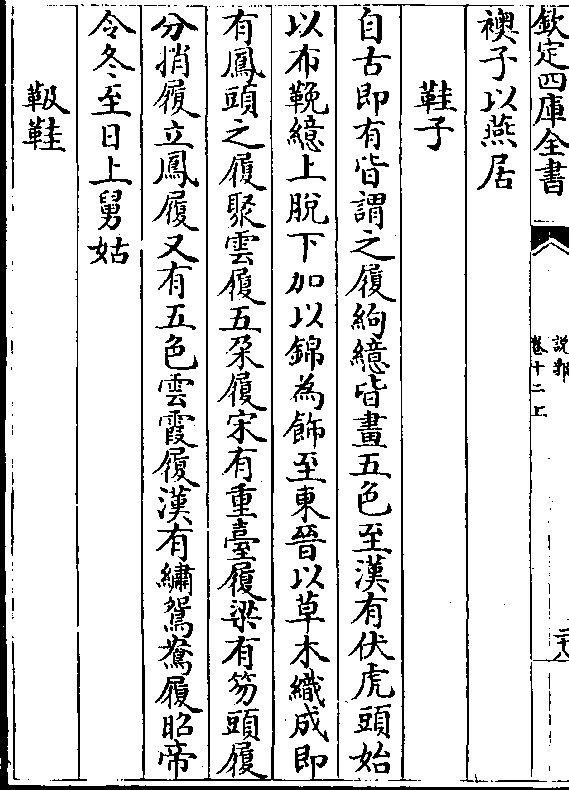 欽定四庫全書
說郛
卷十二上
二十八
襖子以燕居
鞋子
自古即有皆謂之履絇繶皆畫五色至漢有伏虎頭始
以布鞔繶上脫下加以錦為飾至東晉以草木織成即
有鳳頭之履聚雲履五朶履宋有重臺履梁有笏頭履
分捎履立鳳履又有五色雲霞履漢有繡鴛鴦履昭帝
令冬至日上舅姑
靸鞋